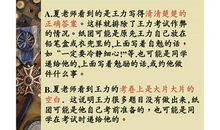 A.夏老师看到的是王力写得清清楚楚的
正确答案。这样就排除了王力考试作弊
的情况。纸团可能是原先王力自己放在
铅笔盒或衣兜里的，上面写着自勉的话，
如“一定要冷静细心!”等,也可能是同学
递给他的,上面写着勉励的话,或约他做
件什么事。
B.夏老师看到的是王力的考卷上是大片大片的
空白。这说明王力很多题目没有做出来，纸
团可能是他自己考前准备的，也可能是同学
在考试时递给他的。